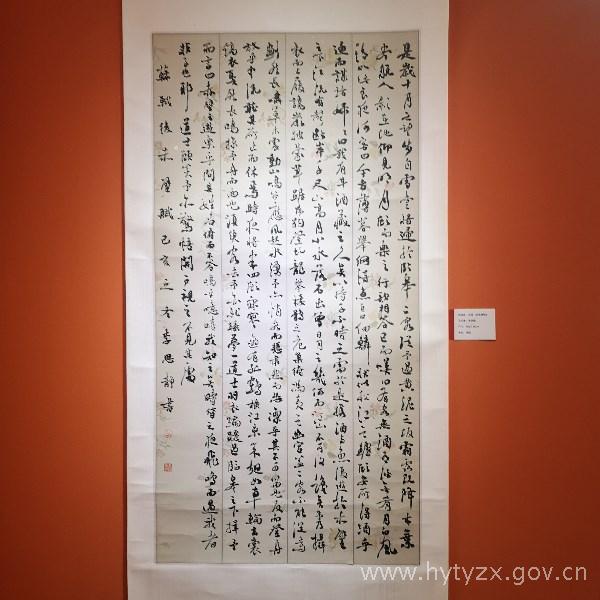 是歲十月之望步自雪堂將歸於臨皋二客從予過黃泥之坂霜露既降木葉
盡脫人影在地仰見明月顧而樂之行歌相答已而嘆曰有客無酒有酒無肴月白風
清如此良夜何客曰今者薄暮舉網得魚巨口細鱗狀似松江之鱸顧安所得酒乎
歸而謀諸婦婦曰我有斗酒藏之久矣以待子不時之需於是攜酒與魚復遊於赤壁
之下江流有聲斷岸千尺山高月小水落石出曾日月之幾何而江山不可復識矣予乃攝
衣而上履巉巖披蒙茸踞虎豹登虬龍攀棲鶻之危巢俯馮夷之幽宮蓋二客不能從焉
劃然長嘯草木震動山鳴谷應風起水湧予亦悄然而悲肅然而恐凜乎其不可留也反而登舟
放乎中流聽其所止而休焉時夜將半四顧寂寥適有孤鶴橫江東來翅如車輪玄裳
縞衣戛然長鳴掠予舟而西也須臾客去予亦就睡夢一道士羽衣蹁躚過臨皋之下揖予
而言曰赤壁之遊樂乎問其姓名俛而不答嗚呼噫嘻我知之矣疇昔之夜飛鳴而過我者
非子也耶道士顧笑予亦驚悟開戶視之不見其處
蘇軾後赤壁賦己亥立冬李思靜書
www.hytyzx.gov.cn